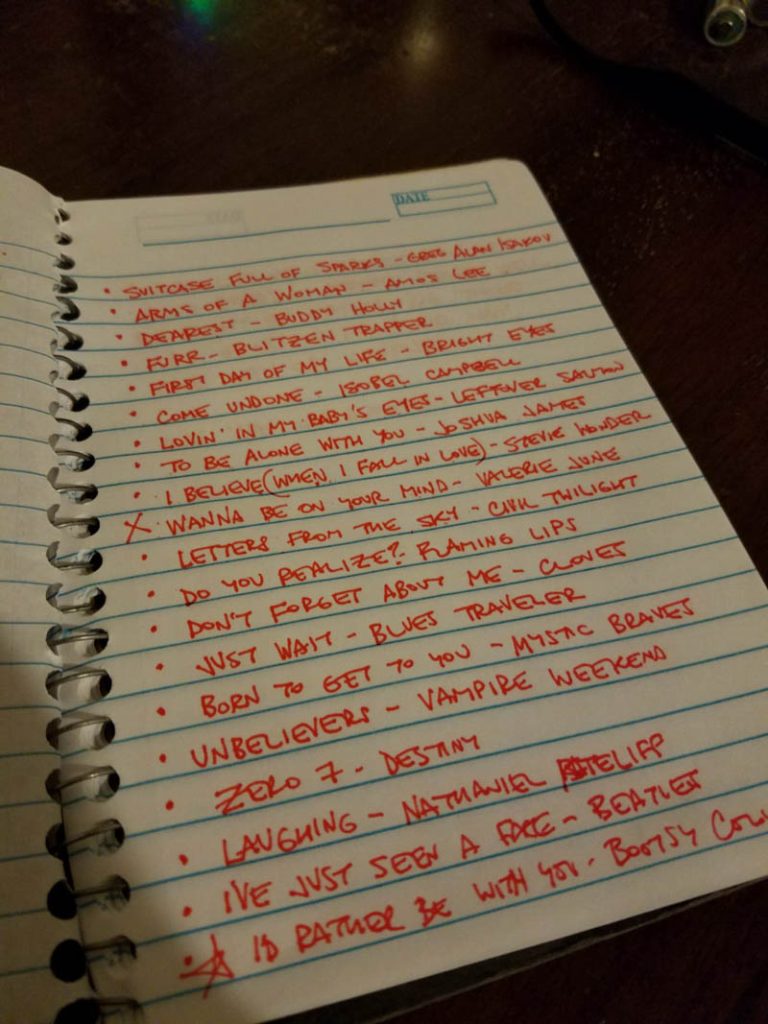 DATE
• SUITCASE FULL OF SPARKS - GREG ALAN ISAKOV
• ARMS OF A WOMAN - AMOS LEE
• DEAREST - BUDDY HOLLY
• FURR - BLITZEN TRAPPER
• FIRST DAY OF MY LIFE - BRIGHT EYES
• COME UNDONE - ISOBEL CAMPBELL
• LOVIN' IN MY BABY'S EYES - LEFTOVER SALMON
• TO BE ALONE WITH YOU - JOSHUA JAMES
• I BELIEVE (WHEN I FALL IN LOVE) - STEVIE WONDER
X WANNA BE ON YOUR MIND - VALERIE JUNE
• LETTERS FROM THE SKY - CIVIL TWILIGHT
• DO YOU REALIZE? - FLAMING LIPS
• DON'T FORGET ABOUT ME - CLOVES
• JUST WAIT - BLUES TRAVELER
• BORN TO GET TO YOU - MYSTIC BRAVES
• UNBELIEVERS - VAMPIRE WEEKEND
• ZERO 7 - DESTINY
• LAUGHING - NATHANIEL
• I'VE JUST SEEN A FACE - BEATLES
• ☆ I'D RATHER BE WITH YOU - BOOTSY COLL